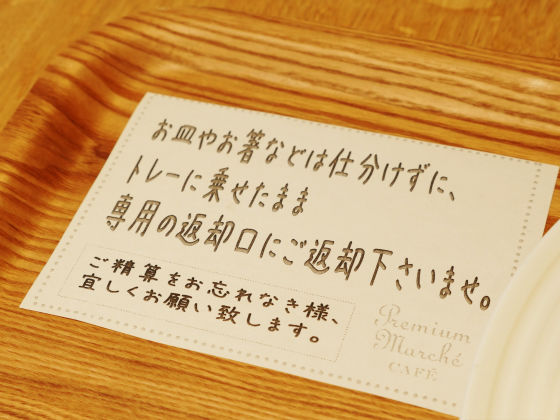 お皿やお箸などは仕分けずに、
トレーに乗せたまま
専用の返却口にご返却下さいませ。
ご精算をお忘れなき様、
宜しくお願い致します。
Premium
Marché
CAFÉ